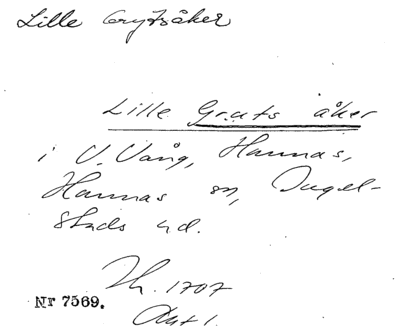 Lille Grytsåker
Lille Gr.ats åker
i V. Vång, Hannas,
Hannas sn, Ingel-
stads hd.
Th. 1707
Akt 1.
Nr 7569.